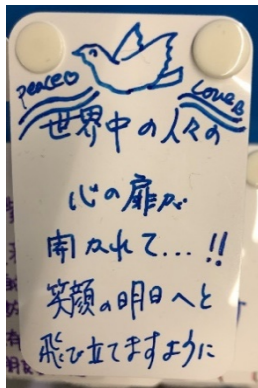 Peace♡
Love♡
世界中の人々の
心の扉が
開かれて...!!
笑顔の明日へと
飛び立てますように